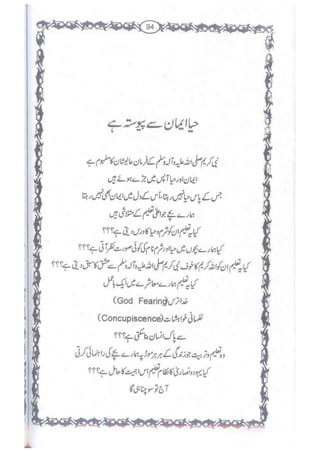 94
حیا ایمان سے پیوستہ ہے
نبی کریم صلی اللہ علیہ وآلہ وسلم کے فرمان عالیشان کا مفہوم ہے
ایمان اور حیا آپس میں جڑے ہوئے ہیں
جس کے پاس حیا نہیں رہتا، اُس کے دل میں ایمان بھی نہیں رہتا
ہمارے بچے جو اعلیٰ تعلیم کے متلاشی ہیں
کیا یہ تعلیم ان کو شرم و حیا کا درس دیتی ہے؟؟؟
کیا ہمارے بچوں میں حیا اور شرم نام کی کوئی صورت نظر آتی ہے؟؟؟
کیا یہ تعلیم ان کو اللہ کریم کا خوف نبی کریم صلی اللہ علیہ وآلہ وسلم سے عشق کا سبق دیتی ہے؟؟؟
کیا یہ تعلیم ہمارے معاشرے میں ایک باعمل
خدا ترس (God Fearing)
نفسانی خواہشات (Concupiscence)
سے پاک انسان بنا سکتی ہے؟؟؟
وہ تعلیم و تربیت جو زندگی کے ہر موڑ پہ ہمارے بچے کی راہنمائی کرتی
کیا یہود و نصاریٰ کا نظام تعلیم اس اہمیت کا حامل ہے؟؟؟
آج تو سوچنا ہی ہوگا